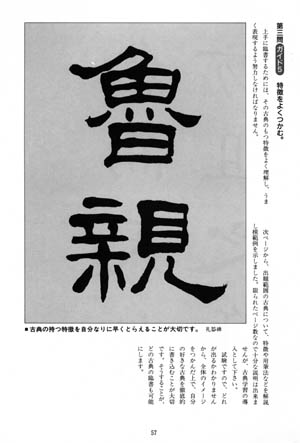 第三問 ガイド5 特徴をよくつかむ。
上手に臨書するためには、その古典のもつ特徴をよく理解し、うま
く表現するよう努力しなければなりません。
魯
親
■古典の持つ特徴を自分なりに早くとらえることが大切です。 礼器碑
次ページから、出題範囲の古典について、特徴や用筆法などを解説
し模範例を示しました。限られたページ数なので十分な説明は出来ま
せんが、古典学習の導
入としてください。
試験ですので、どれ
が出るかわかりません
から、全体のイメージ
をつかんだ上で、自分
の好きな古典を徹底的
に書き込むことが大切
です。そうすることが、
どの古典の臨書も可能
にします。
57